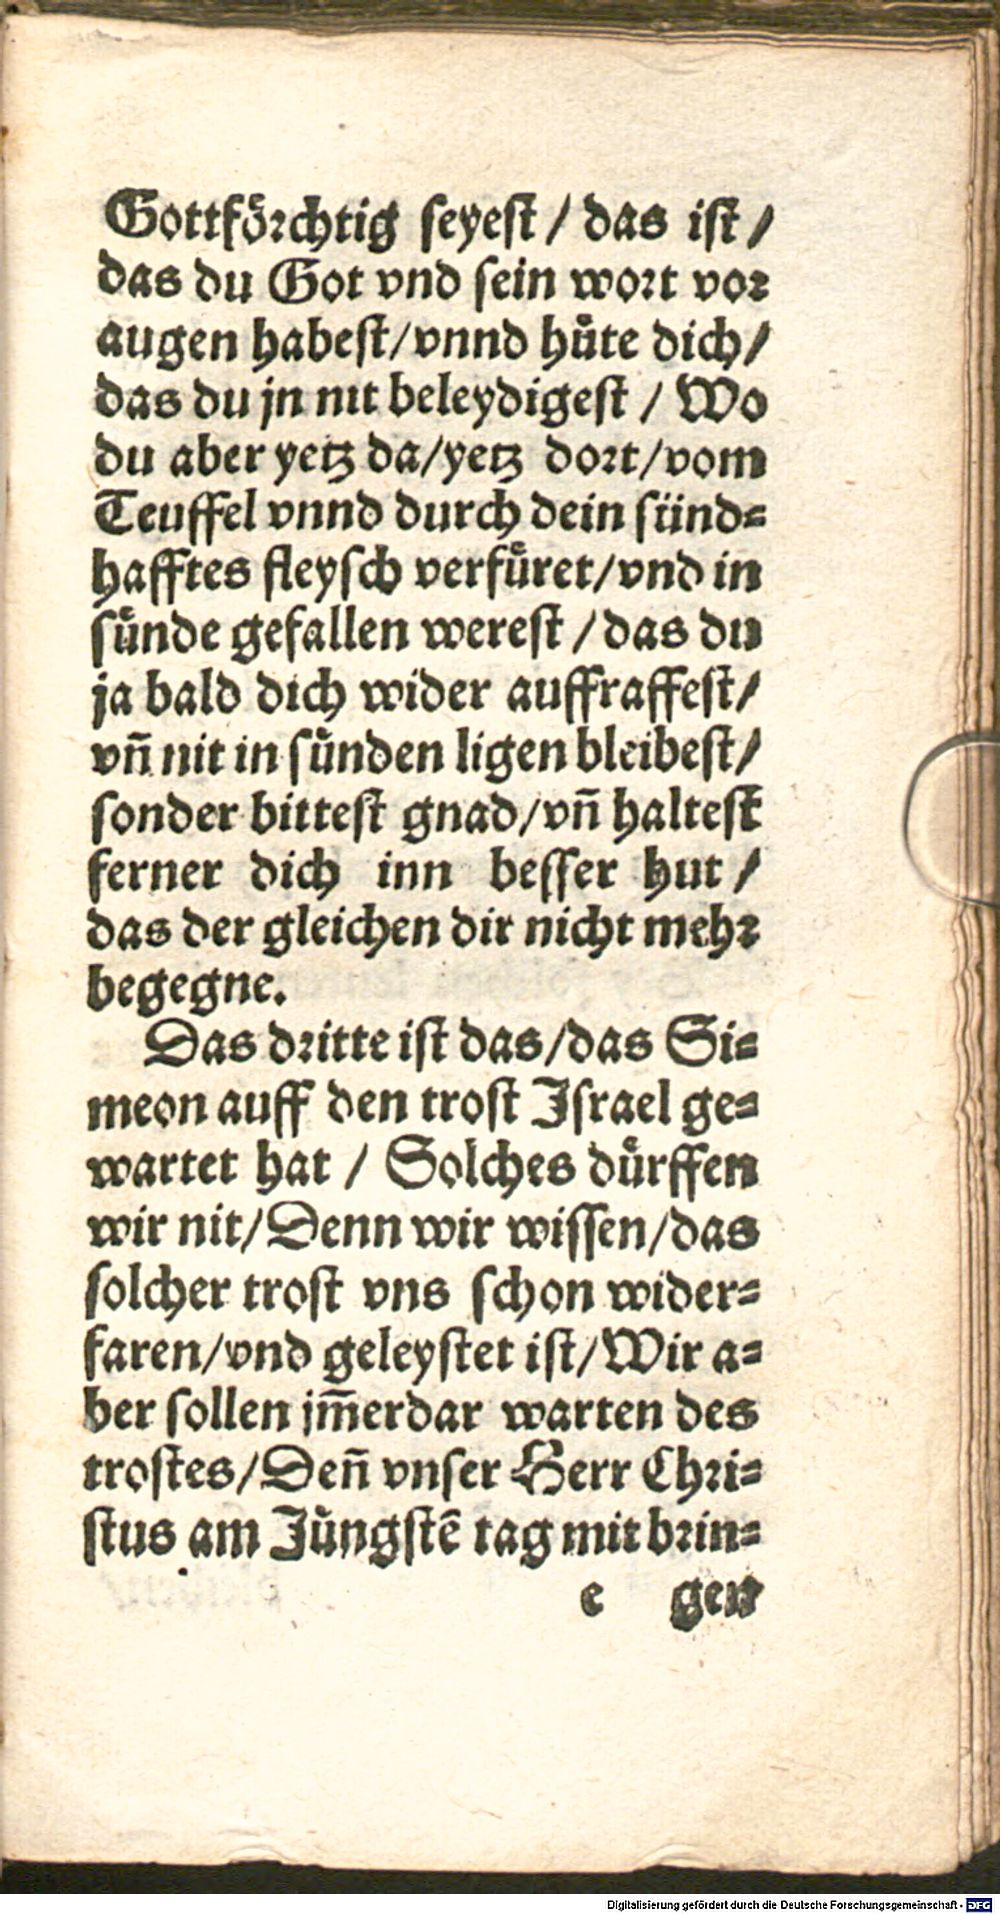 Gottföꝛchtig seyest / das ist /
das du Got vnd sein woꝛt voꝛ
augen habest/vnnd hüte dich/
das du jn nit beleydigest / Wo
du aber yetz da/yetz doꝛt/vom
Teuffel vnnd durch dein sünd⸗
hafftes fleysch verfüret/vnd in
sünde gefallen werest / das du
ja bald dich wider auffraffest/
vn̄ nit in sünden ligen bleibest/
sonder bittest gnad/vn̄ haltest
ferner dich inn besser hut /
das der gleichen dir nicht mehꝛ
begegne.
Das dꝛitte ist das/das Si⸗
meon auff den trost Israel ge⸗
wartet hat / Solches dürffen
wir nit/Denn wir wissen/das
solcher trost vns schon wider⸗
faren/vnd geleystet ist/Wir a⸗
ber sollen jm̄erdar warten des
trostes/Den̄ vnser Herr Chꝛi⸗
stus am Jüngstē tag mit bꝛin⸗
e gen
Digitalisierung gefördert durch die Deutsche Forschungsgemeinschaft - DFG